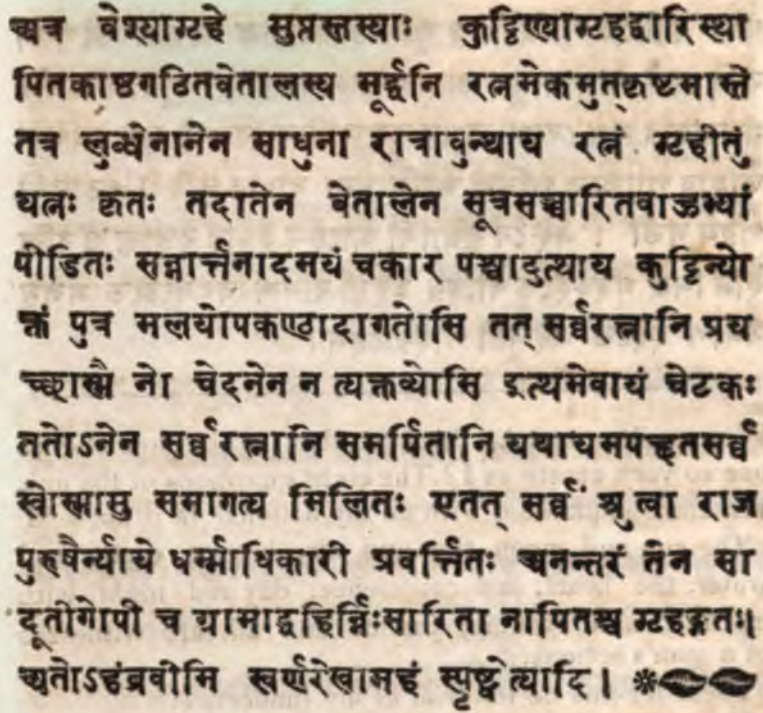 अत्र वेश्यागृहे सुप्तस्तस्याः कुट्टिण्यागृहद्वारिस्था
पितकाष्ठगठितवेतालस्य मूर्द्धनि रत्नमेकमुत्कृष्टमास्ते
तत्र लुब्धेनानेन साधुना रात्रावुत्थाय रत्नं गृहीतुं
यत्नः कृतः तदातेन वेतालेन सूत्रसञ्चारितवाहुभ्यां
पीडितः सन्नार्त्तनादमयं चकार पश्चादुत्थाय कुट्टिन्यो
क्तं पुत्र मलयोपकण्ठादागतोसि तत् सर्व्वरत्नानि प्रय
च्छास्मै नो चेदनेन न त्यक्तव्योसि इत्थमेवायं चेटकः
ततोऽनेन सर्व्वरत्नानि समर्पितानि यथायमपहृतसर्व्व
स्वोस्मासु समागत्य मिलितः एतत् सर्व्वं श्रुत्वा राज
पुरुषैर्न्याये धर्म्माधिकारी प्रवर्त्तितः अनन्तरं तेन सा
दूतीगोपी च ग्रामाद्वहिर्न्निःसारिता नापितश्च गृहङ्गतः।
अतोऽहंब्रवीमि स्वर्णरेखामहं स्पृष्ट्वेत्यादि। *